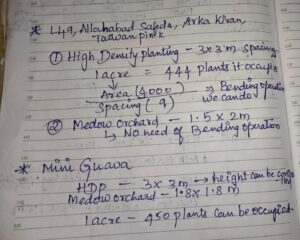 * L49, Allahabad Safeda, Arka Kiran,
Taiwan pink
① High Density planting - 3x3m spacing
1 acre = 444 plants it occupies
Area (4000) → Bending operation
Spacing (9) we can do
② Medow orchard - 1.5 x 2m
↳ No need of Bending operation
* Mini Guava
HDP - 3x3m → height can be
Medow orchard - 1.8 x 1.8 m
1 acre - 450 plants can be occupied.